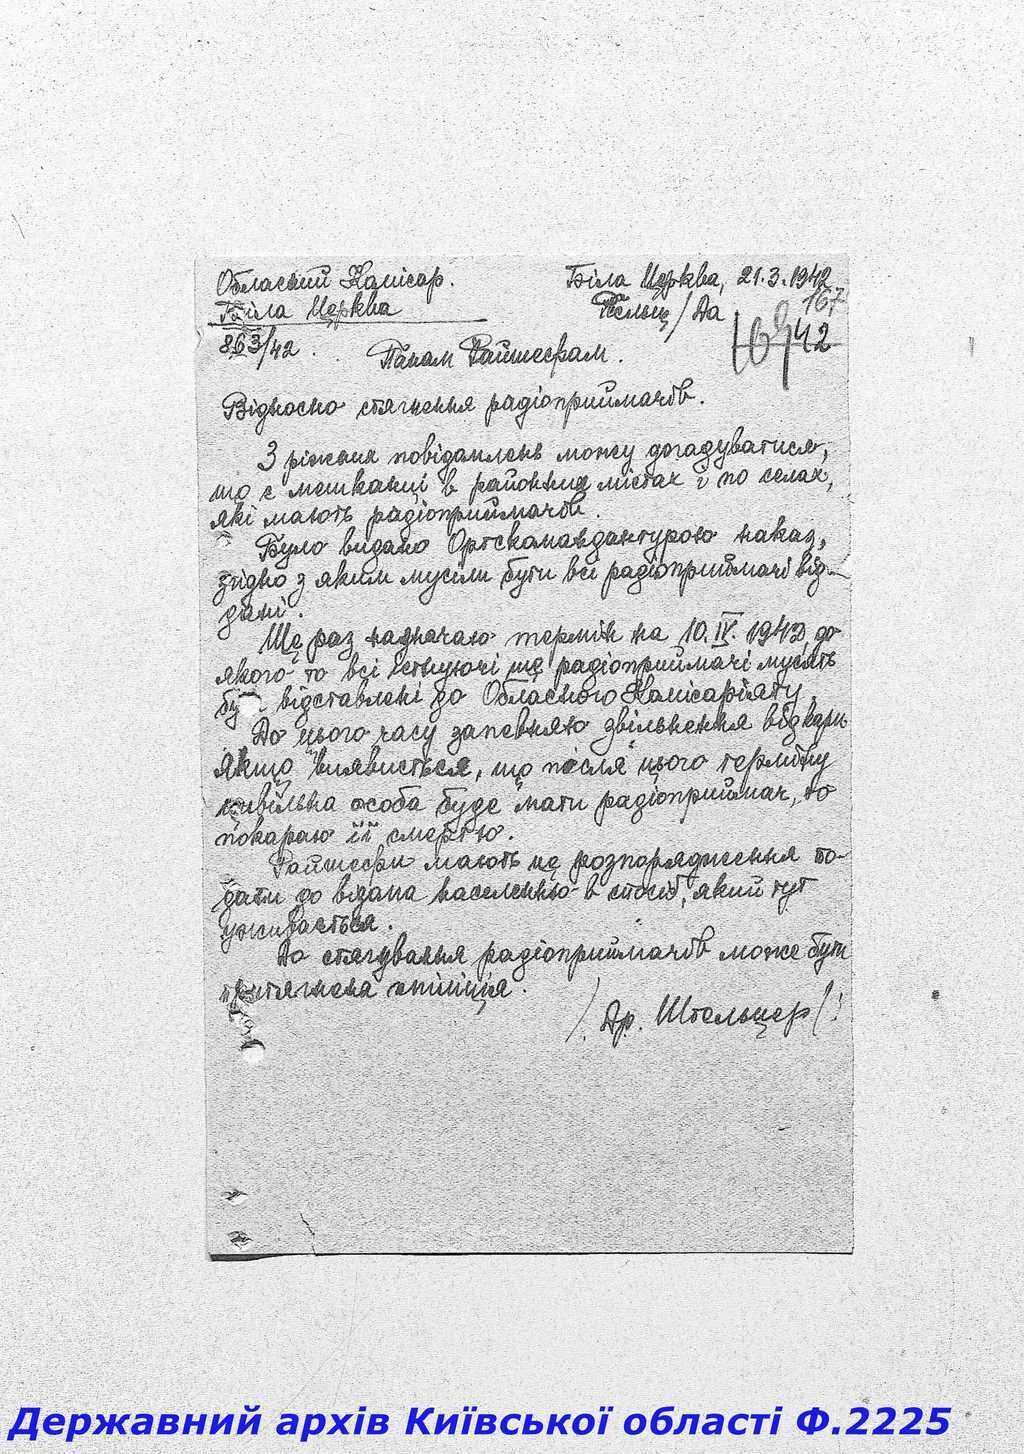 Обласний Комісар.
Біла Церква
863/42.
Біла Церква, 21.3.1942
Пельц/Да
167
42
Панам Райшефам.
Відносно стягнення радіоприймачів.
З ріжних повідомлень можу догадуватися,
що є мешканці в районних містах і по селах,
які мають радіоприймачів.
Було видано Ортскомандантурою наказ,
згідно з яким мусіли бути всі радіоприймачі від-
дані.
Ще раз назначаю термін на 10.IV.1942, до
якого то всі існуючі ще радіоприймачі мусять
бути відставлені до Обласного Комісаріяту.
До цього часу запевняю звільнення від кари
Якщо виявиться, що після цього терміну
цивільна особа буде мати радіоприймач, то
покараю її смертю.
Райшефи мають це розпорядження по-
дати до відома населенню в спосіб, який тут
уживається.
До стягування радіоприймачів може бути
притягнена міліція.
/Др. Штельцер/
Державний архів Київської області Ф.2225